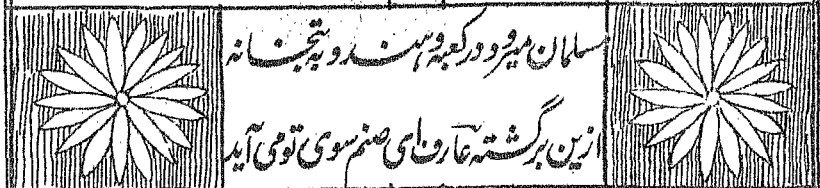 مسلمان میرود در کعبه و هندو به بتخانه
ازین برگشته عارف ای صنم سوی تو می آید